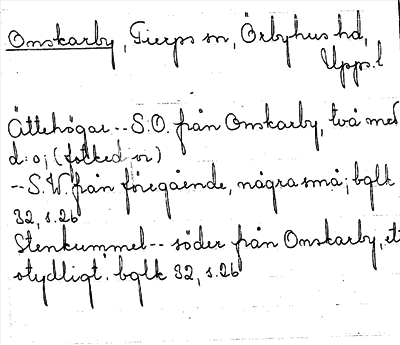 Onskarby, Tierps sn, Örbyhus hd,
Upps. l
Ättehögar -- S.O. från Onskarby, två med
d:o; (
-- S.V. från föregående, några små; bglk
32, s. 26
Stenkummel -- söder från Onskarby, ett
otydligt. bglk 32, s. 26